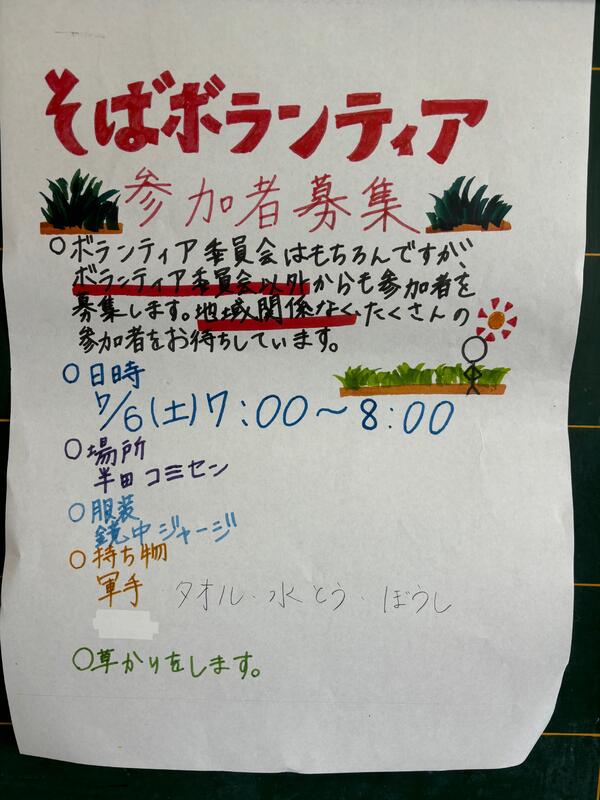 そばボランティア
参加者募集
○ボランティア委員会はもちろんですが、
ボランティア委員会以外からも参加者を
募集します。地域関係なく、たくさんの
参加者をお待ちしています。
○日時
7/6(土)7:00～8:00
○場所
半田コミセン
○服装
鏡中ジャージ
○持ち物
軍手 タオル・水とう・ぼうし
○草かりをします。